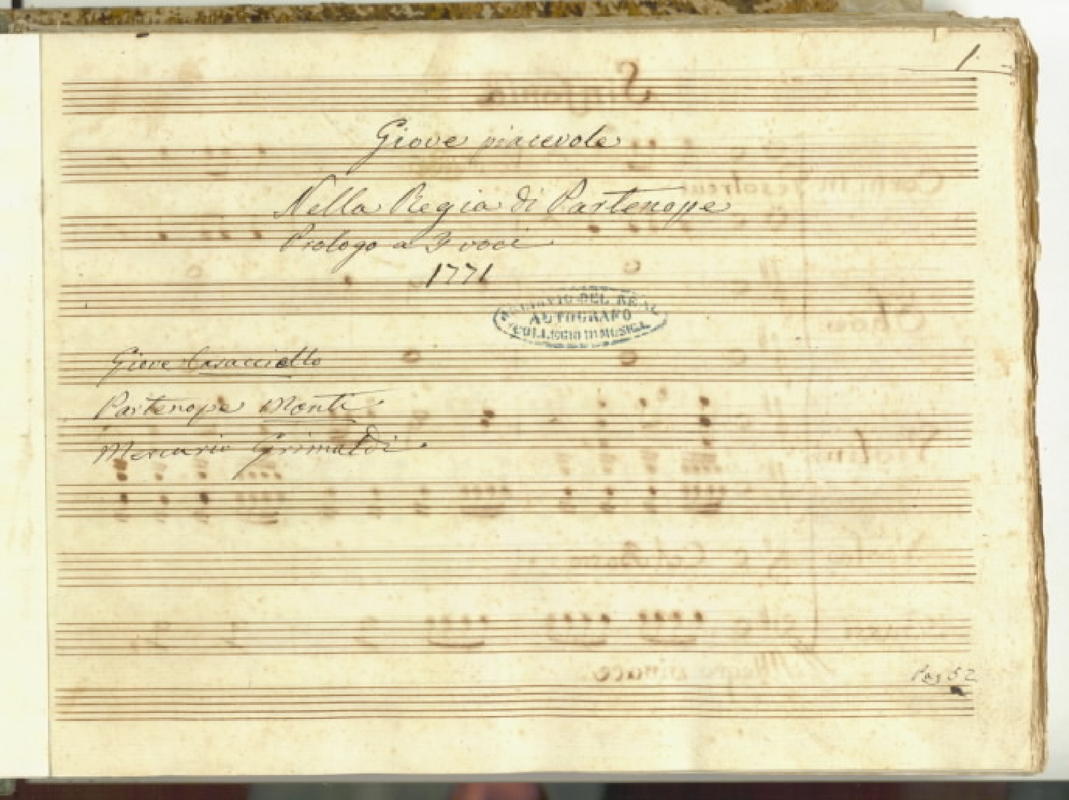 1
Giove piacevole
Nella Regia di Partenope
Prologo a 3 voci
1771
ARCHIVIO DEL REAL
AUTOGRAFO
COLLEGIO DI MUSICA
Giove Caracciollo
Partenope Monti
Mercurio Grimaldi
Pag 52